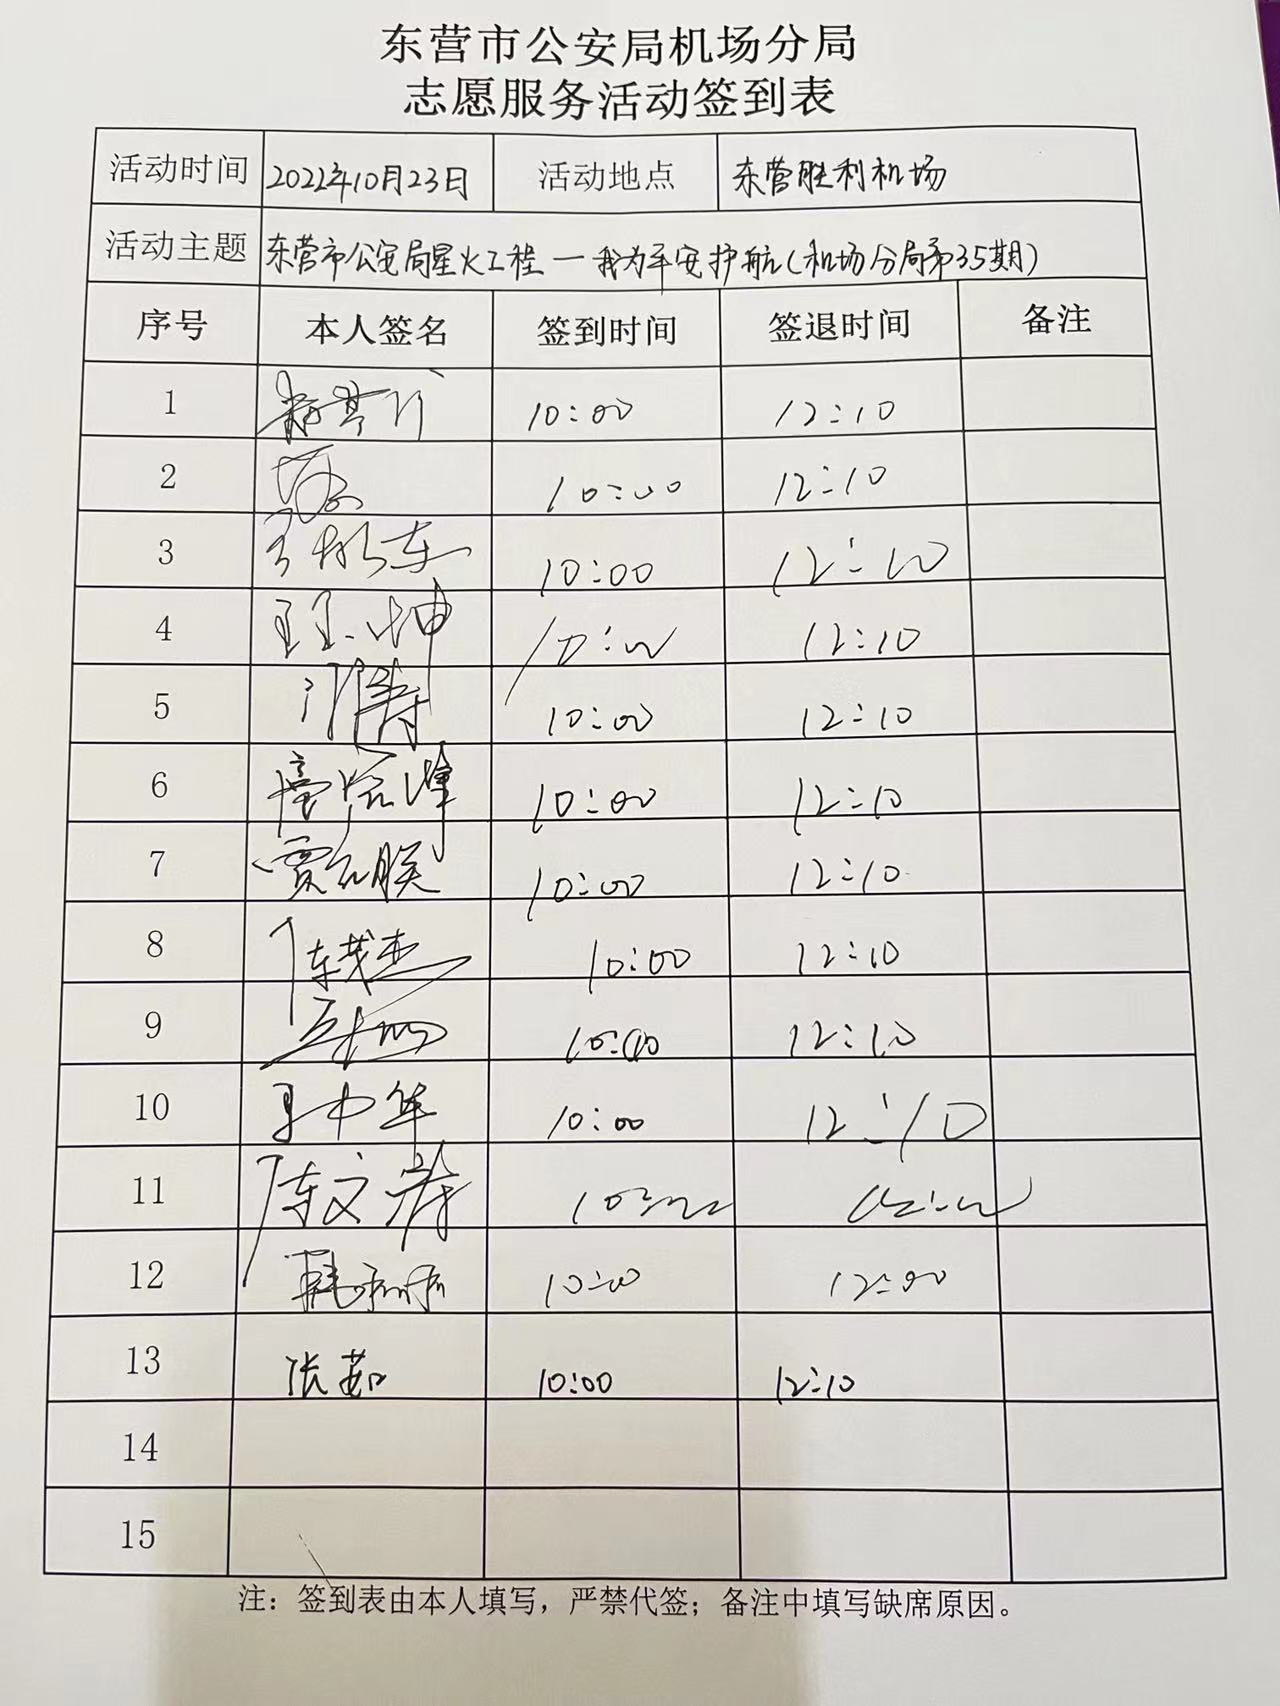 东营市公安局机场分局
志愿服务活动签到表
活动时间 2022年10月23日 活动地点 东营胜利机场
活动主题 东营市公安局星火工程—我为平安护航(机场分局第35期)
序号 本人签名 签到时间 签退时间 备注
1 10:00 12:10
2 10:00 12:10
3 10:00 12:10
4 10:00 12:10
5 10:00 12:10
6 10:00 12:10
7 10:00 12:10
8 陈茂杰 10:00 12:10
9 10:00 12:10
10 王中华 10:00 12:10
11 10:00
12 10:00 12:00
13 张茹 10:00 12:10
14
15
注：签到表由本人填写，严禁代签；备注中填写缺席原因。